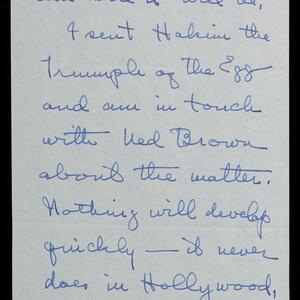 I sent Hakim the
Triumph of the Egg
and am in touch
with Ned Brown
about the matter.
Nothing will develop
quickly — it never
does in Hollywood,